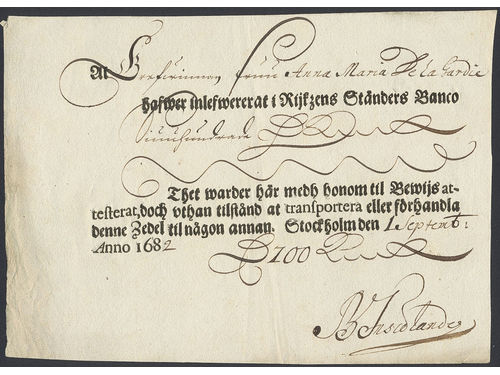 At Grefwinnan fruu Anna Maria De la Gardie
hafwer inlefwererat i Rijkzens Ständers Banco
Siuuhundrade
Thet warder här medh honom til Bewijs at-
testerat, doch vthan tilstånd at transportera eller förhandla
denne Zedel til någon annan. Stockholm den 1 Septemb:
Anno 1682
700